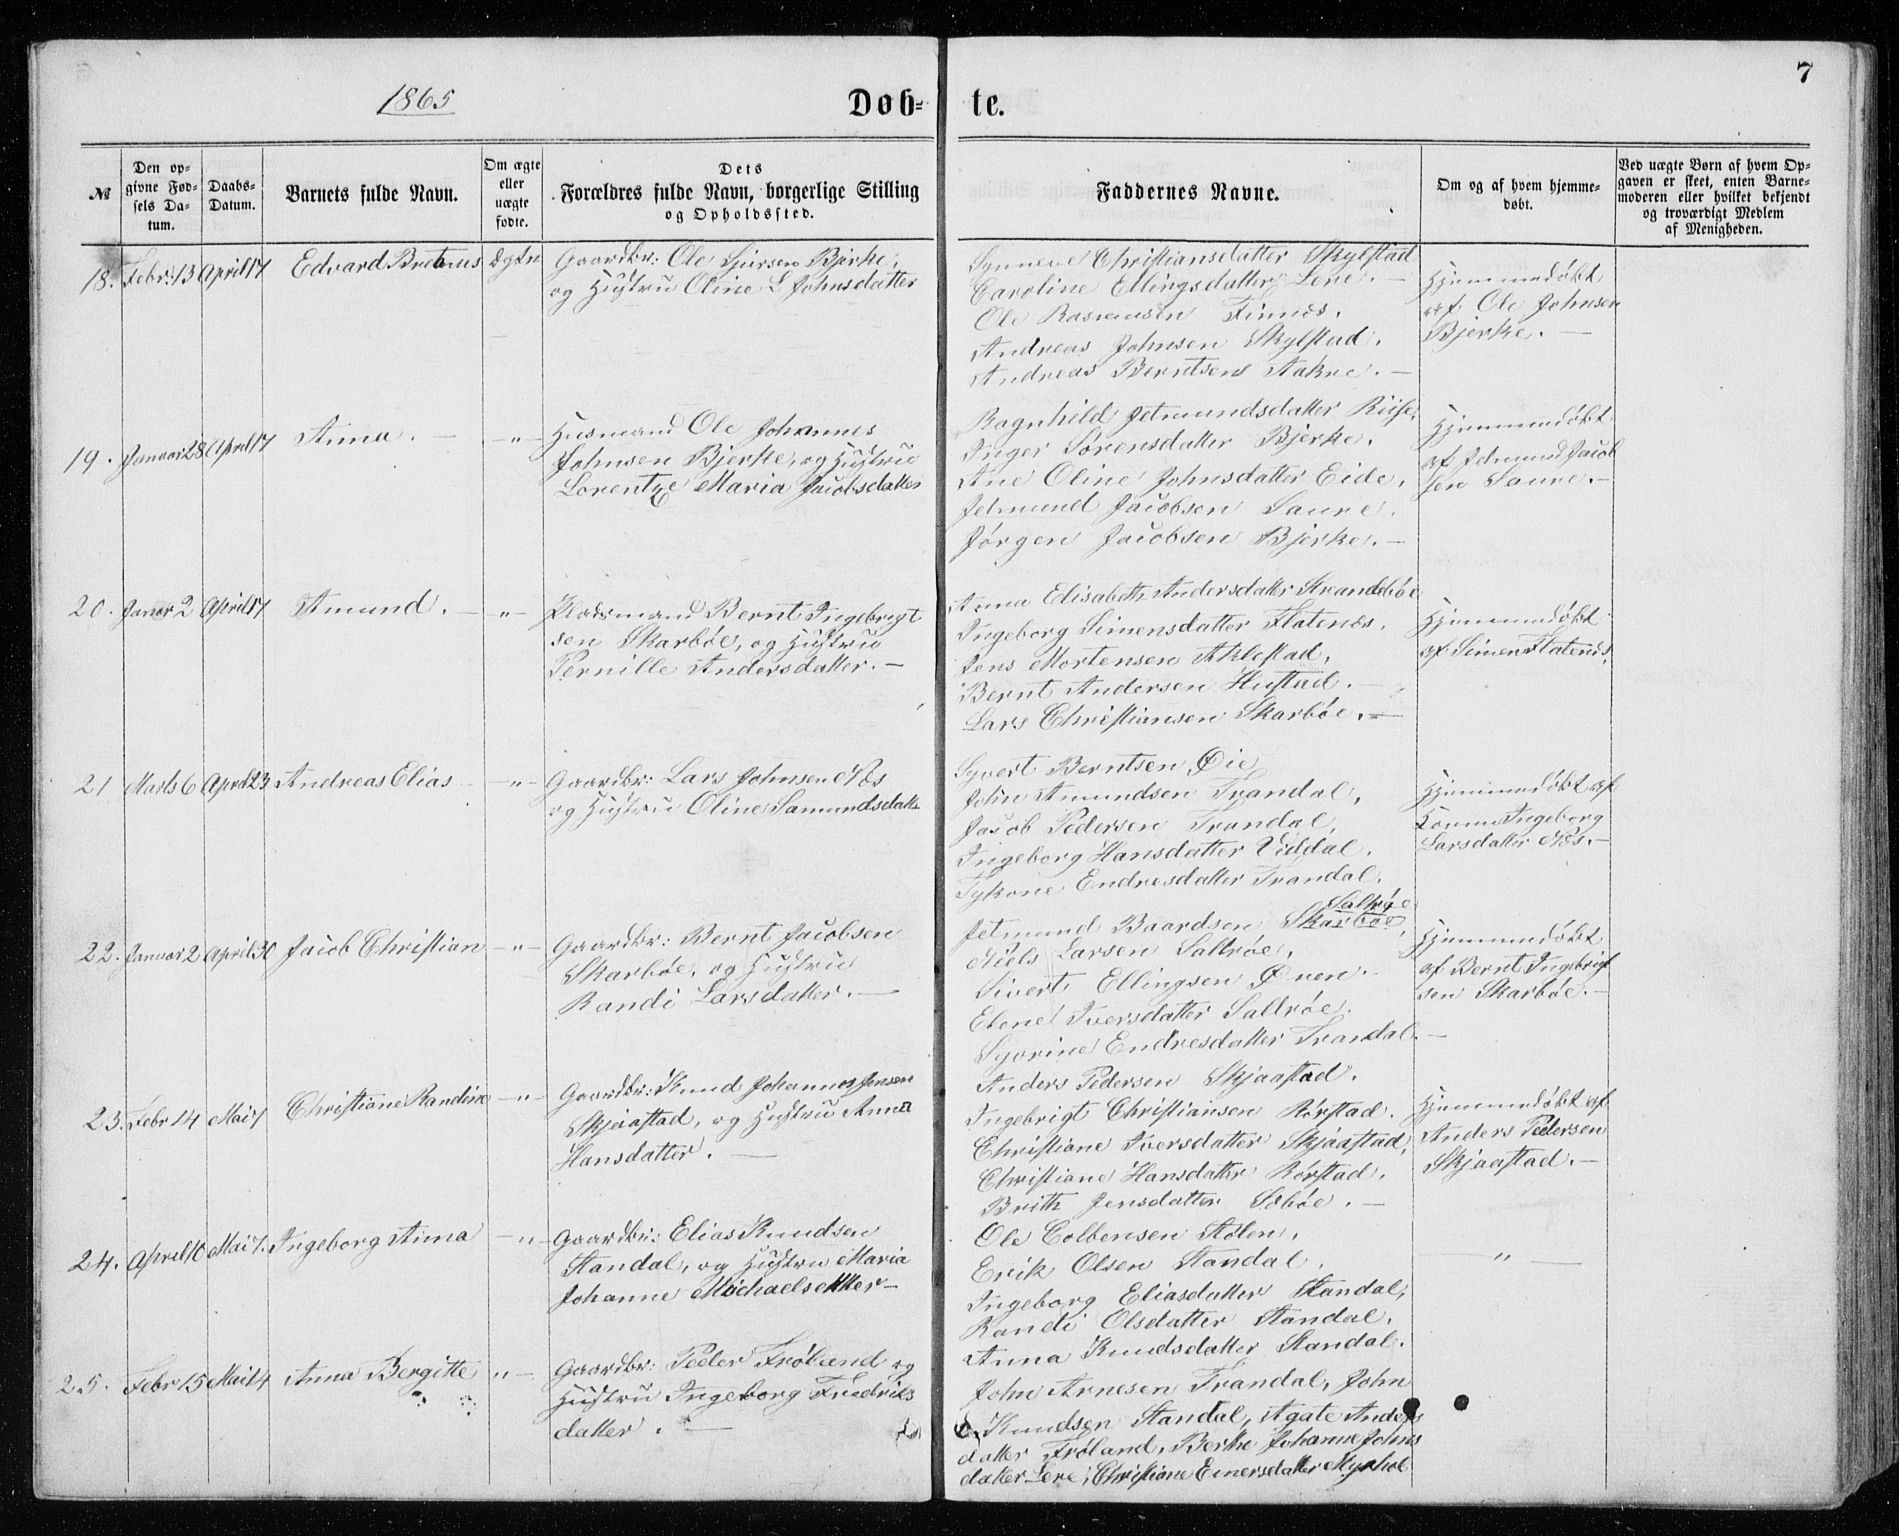 7
1865
Døb-
te.
№
Den op-
givne Fød-
sels Da-
tum.
Daabs-
Datum.
Barnets fulde Navn.
Om ægte
eller
uægte
fødte.
Dets
Forældres fulde Navn, borgerlige Stilling
og Opholdssted.
Faddernes Navne.
Om og af hvem hjemme-
døbt.
Ved uægte Børn af hvem Op-
gaven er skeet, enten Barne-
moderen eller hvilket bekjendt
og troværdigt Medlem
af Menigheden.
18. Febr: 13 April 17 Edvard Breteius
Gaardbr: Ole Bjerke,
og Hustru Oline L Johnsdatter
Synneve Christiansdatter Skylstad
Caroline Ellingsdatter Lere. -
Ole Rasmusen Finnes.
Andreas Johnsen Skylstad.
Andreas Berntsens Aakre. -
Hjemmedøbt
af Ole Johnsen
Bjerke. -
19. Januar 28 April 17 Anna. - -"-
Husmand Ole Johannes
Johnsen Bjerke, og Hustru
Lorentze Maria Jacobsdatter
Ragnhild Jetmundsdatter Riise,
Inger Sørensdatter Bjerke.
Ane Oline Johnsdatter Eide,
Jetmund Jacobsen Saure.
Jørgen Jacobsen Bjerke. -
Hjemmedøbt
af Jetmund Jacob
sen Saure. -
20. Januar 2 April 17 Amund. - -"-
Pladsmand Bernt Ingebrigt
sen Skarbøe, og Hustru
Pernille Andersdatter. -
Anna Elisabeth Andersdatter Strandebøe
Ingeborg Simensdatter Flatenæs.
Jens Mortensen Aklestad,
Bernt Andersen Hustad. -
Lars Christiansen Skarbøe. -
Hjemmedøbt
af Simen Flatenæs.
21 Marts 6 April 23 Andreas Elias -"-
Gaardbr: Lars Johnsen Næs
og Hustru Oline Samundsdatter
Syvert Berntsen Øie,
John Amundsen Trandal,
Jacob Pedersen Trandal,
Ingeborg Hansdatter Viddal.
Sykone Endresdatter Trandal.
Hjemmedøbt af
Konne Ingeborg
Larsdatter Næs. -
22. Januar 2 April 30 Jacob Christian -"-
Gaardbr: Bernt Jacobsen
Skarbøe, og Hustru
Randi Larsdatter. -
Saltrøe
Jetmund Baardsen Skarbøe,
Niels Larsen Saltrøe,
Sivert Ellingsen Øvren.
Elene Iversdatter Saltrøe.
Syvrine Endresdatter Trandal. -
Hjemmedøbt
af Bernt Ingebrigt
sen Skarbøe. -
23. Febr 14 Mai 7 Christiane Randine -"-
Gaardbr: Knud Johannes Jensen
Skjaastad, og Hustru Anna
Hansdatter. -
Anders Pedersen Skjaastad.
Ingebrigt Christiansen Rørstad.
Christiane Iversdatter Skjaastad,
Christiane Hansdatter Rørstad.
Brith Jensdatter Sæbøe. -
Hjemmedøbt af
Anders Pedersen
Skjaastad. -
24. April 10 Mai 7. Ingeborg Anna -"-
Gaardbr: Elias Knudsen
Standal, og Hustru Maria
Johanne Michaelsdatter -
Ole Colbensen Stølen,
Erik Olsen Standal.
Ingeborg Eliasdatter Standal,
Randi Olsdatter Standal.
Anna Knudsdatter Standal.
- " -
25. Febr 15 Mai 14 Anna Bergitte "-
Gaardbr: Peder Frøland og
Hustru Ingeborg Fredriks
datter. -
John Arnesen Trandal, John
Knudsen Standal, Agate Anders
datter Frøland, Berthe Johanne Johns
datter Lere, Christiane Einersdatter Myrhol